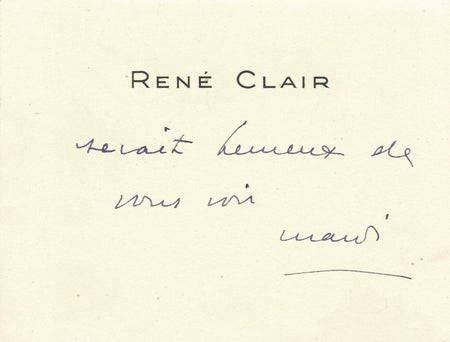 RENÉ CLAIR
serait heureux de
vous voir
mardi